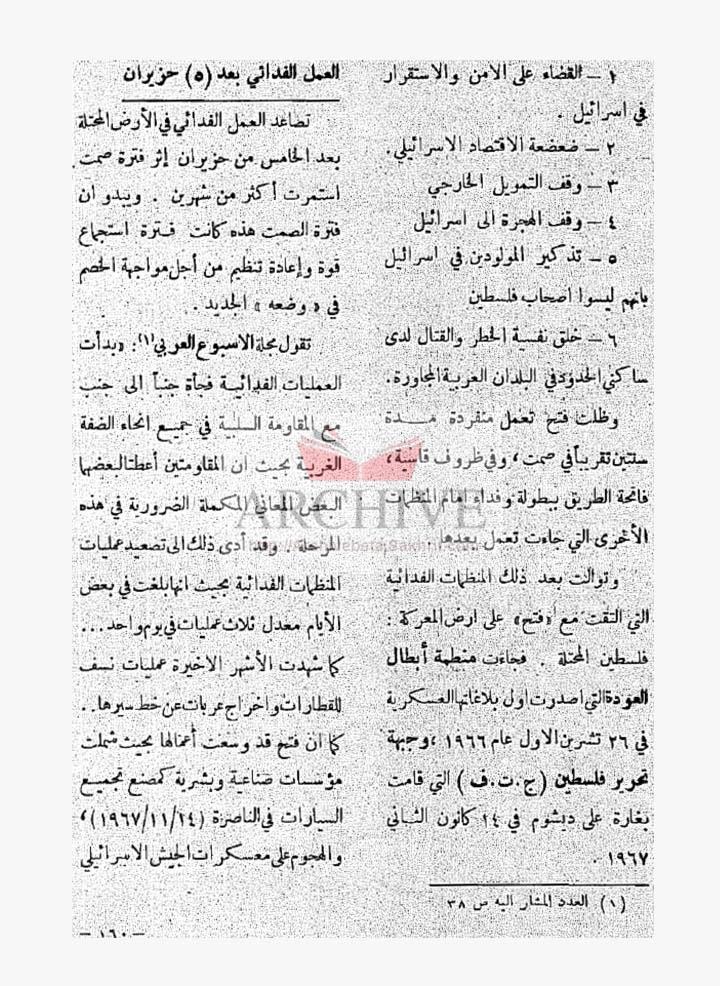 ١ – القضاء على الامن والاستقرار
في اسرائيل .
٢ – ضعضعة الاقتصاد الاسرائيلي.
٣ – وقف التمويل الخارجي
٤ – وقف الهجرة الى اسرائيل
٥ – تذكير المولودين في اسرائيل
بانهم ليسوا اصحاب فلسطين
٦ – خلق نفسية الخطر والقتال لدى
ساكني الحدود في البلدان العربية المجاورة.
وظلت فتح تعمل منفردة مدة
سنتين تقريباً في صمت، وفي ظروف قاسية،
فاتحة الطريق ببطولة وفداء امام المنظمات
الأخرى التي جاءت تعمل بعدها .
وتوالت بعد ذلك المنظمات الفدائية
التي التقت مع «فتح» على ارض المعركة :
فلسطين المحتلة . فجاءت منظمة أبطال
العودة التي اصدرت اول بلاغاتها العسكرية
في ٢٦ تشرين الاول عام ١٩٦٦، وجبهة
تحرير فلسطين (ج.ت.ف) التي قامت
بغارة على ديشوم في ١٤ كانون الثاني
١٩٦٧ .
(١) العدد المشار اليه ص ٣٨
العمل الفدائي بعد (٥) حزيران
تصاعد العمل الفدائي في الأرض المحتلة
بعد الخامس من حزيران إثر فترة صمت
استمرت أكثر من شهرين . ويبدو ان
فترة الصمت هذه كانت فترة استجماع
قوة وإعادة تنظيم من أجل مواجهة الخصم
في « وضعه » الجديد .
تقول مجلة الاسبوع العربي(١): «بدأت
العمليات الفدائية فجأة جنباً الى جنب
مع المقاومة السلبية في جميع انحاء الضفة
الغربية بحيث ان المقاومتين أعطتا لبعضها
البعض المعاني المكملة الضرورية في هذه
المرحلة . وقد أدى ذلك الى تصعيد عمليات
المنظمات الفدائية بحيث انها بلغت في بعض
الأيام معدل ثلاث عمليات في يوم واحد ...
كما شهدت الأشهر الاخيرة عمليات نسف
للقطارات واخراج عربات عن خط سيرها..
كما ان فتح قد وسعت أعمالها بحيث شملت
مؤسسات صناعية وبشرية كمصنع تجميع
السيارات في الناصرة (١٩٦٧/١١/٢٤)،
والهجوم على معسكرات الجيش الاسرائيلي
– ١٦٠ –
ARCHIVE